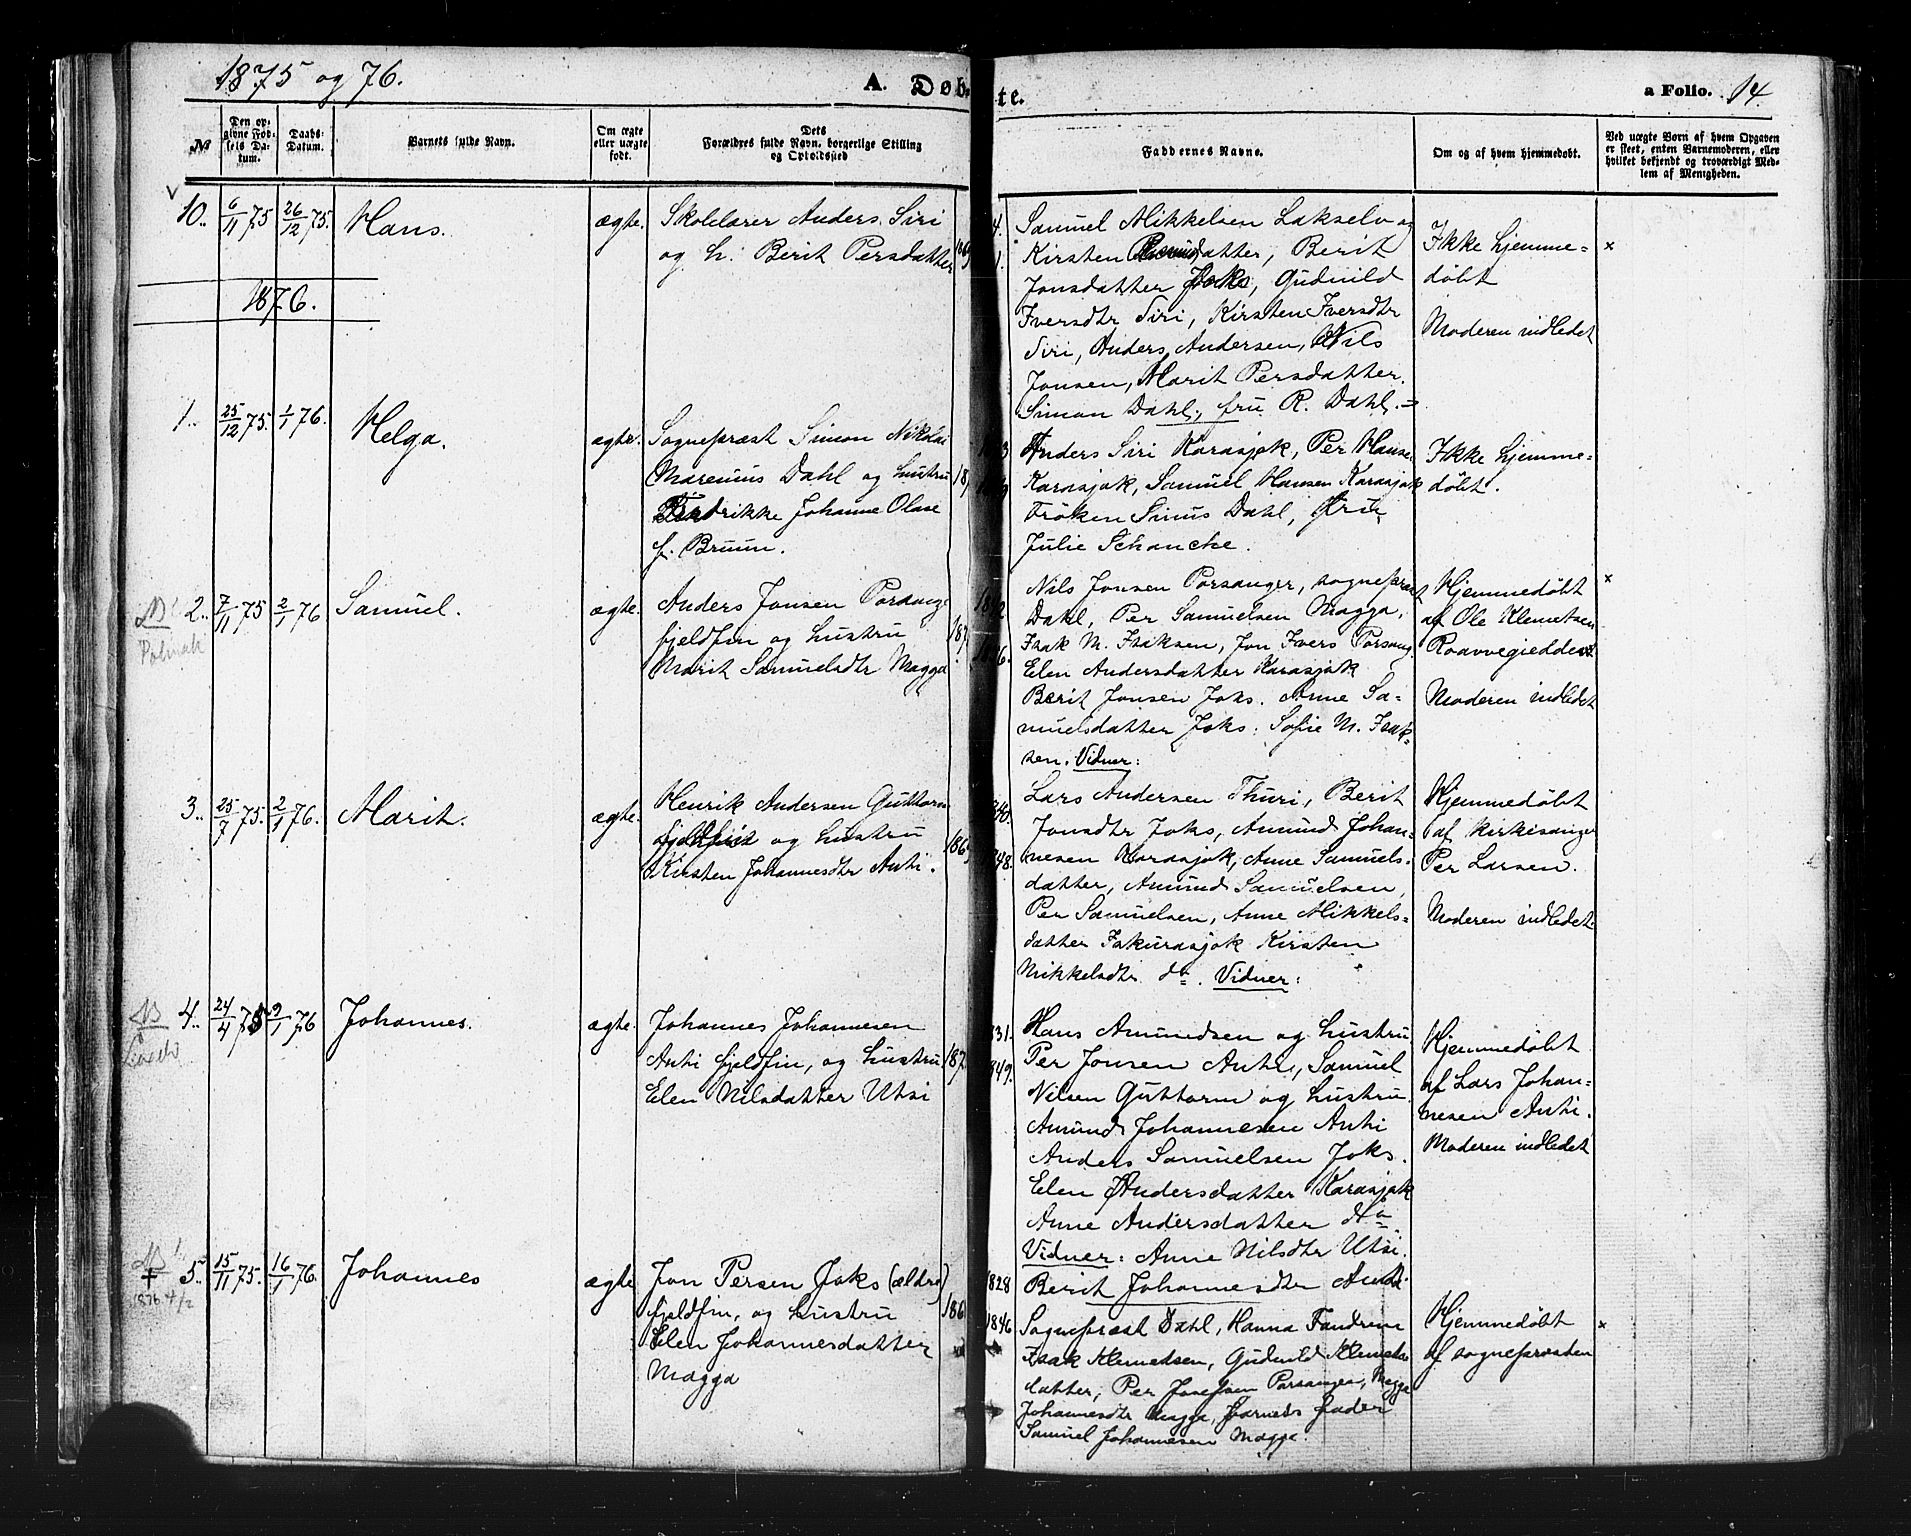 1875 og 76.
A. Døb
te.
a Folio. 14.
№
Den op-
givne Fød-
sels Da-
tum.
Daabs-
Datum.
Barnets fulde Navn.
Om ægte
eller uægte
født.
Dets
Forældres fulde Navn, borgerlige Stilling
og Opholdssted
Faddernes Navne.
Om og af hvem hjemmedøbt.
Ved uægte Børn af hvem Opgaven
er skeet, enten Barnemoderen, eller
hvilket bekjendt og troværdigt Med-
lem af Menigheden.
10.. 6/11 75 26/12 75. Hans. ægte.
Skolelærer Anders Siri
og h. Berit Persdatter
Samuel Mikkelsen Lakselv og
Kirsten datter, Berit
Jonsdatter Joks, Gudnild
Iversdtr Siri, Kirsten Iversdtr
Siri, Anders Andersen, Nils
Jonsen, Marit Persdatter.
Simon Dahl, fru R. Dahl.=
Ikke hjemme=
døbt
Moderen indledet
×
1876.
1.. 25/12 75. 1/1 76. Helga. ægte.
Sognepræst Simon Nikolai
Marenius Dahl og hustru
Fredrikke Johanne Olave
f. Bruun.
Anders Siri Karasjok, Per Hanse
Karasjok, Samuel Hansen Karasjok
Frøken Sinus Dahl, Fru
Julie Schancke.
Ikke hjemme=
døbt.
2.. 7/11 75 2/1 76 Samuel. ægte.
Polmak
Anders Jonsen Porsange
fjeldfin og hustru
Marit Samuelsdtr Magga
Nils Jonsen Porsanger, sognepræst
Dahl, Per Samuelsen Magga,
Isak M. Isaksen, Jon Ivers Porsang.
Elen Andersdatter Karasjok
Berit Jonsen Joks. Anne Sa=
muelsdatter Joks: Sofie M. Isak=
sen. Vidner:
Hjemmedøbt
af Ole Klemetsen
Roavvegiedde
Moderen indledet
×
3.. 25/7 75. 2/1 76. Marit. ægte.
Henrik Andersen Guttorm
fjeldfin og hustru
Kirsten Johannesdtr Anti.
Lars Andersen Thuri, Berit
Jonsdtr Joks, Amund Johan=
nesen Karasjok, Anne Samuels=
datter, Amund Samuelsen,
Per Samuelsen, Anne Mikkels=
datter Karasjok Kirsten
Mikkelsdtr do. Vidner:
Hjemmedøbt
af kirkesanger
Per Larsen.
Moderen indledet.
4.. 24/4 75 9/1 76 Johannes. ægte.
Johannes Johannesen
Anti fjeldfin, og hustru
Elen Nilsdatter Utsi
Hans Amundsen og hustru
Per Jonsen Anti, Samuel
Nilsen Guttorm og hustru
Amund Johannesen Anti
Anders Samuelsen Joks.
Elen Andersdatter Karasjok
Anne Andersdatter do
Vidner: Anne Nilsdtr Utsi.
Berit Johannesdtr Anti.
Hjemmedøbt
af Lars Johan=
nesen Anti.
Moderen indledet
5.. 15/11 75. 16/1 76. Johannes ægte
1876 4/2
Jon Persen Joks (ældre)
fjeldfin, og hustru
Elen Johannesdatter
Magga
1828
1846
Sognepræst Dahl, Hanna Fandrem
Isak Klemetsen, Gudnild Klemets
datter, Per Josefsen Porsanger, Magga
Johannesdtr Magga, Barnets fader
Samuel Johannesen Magga.
Hjemmedøbt
af sognepræsten
×